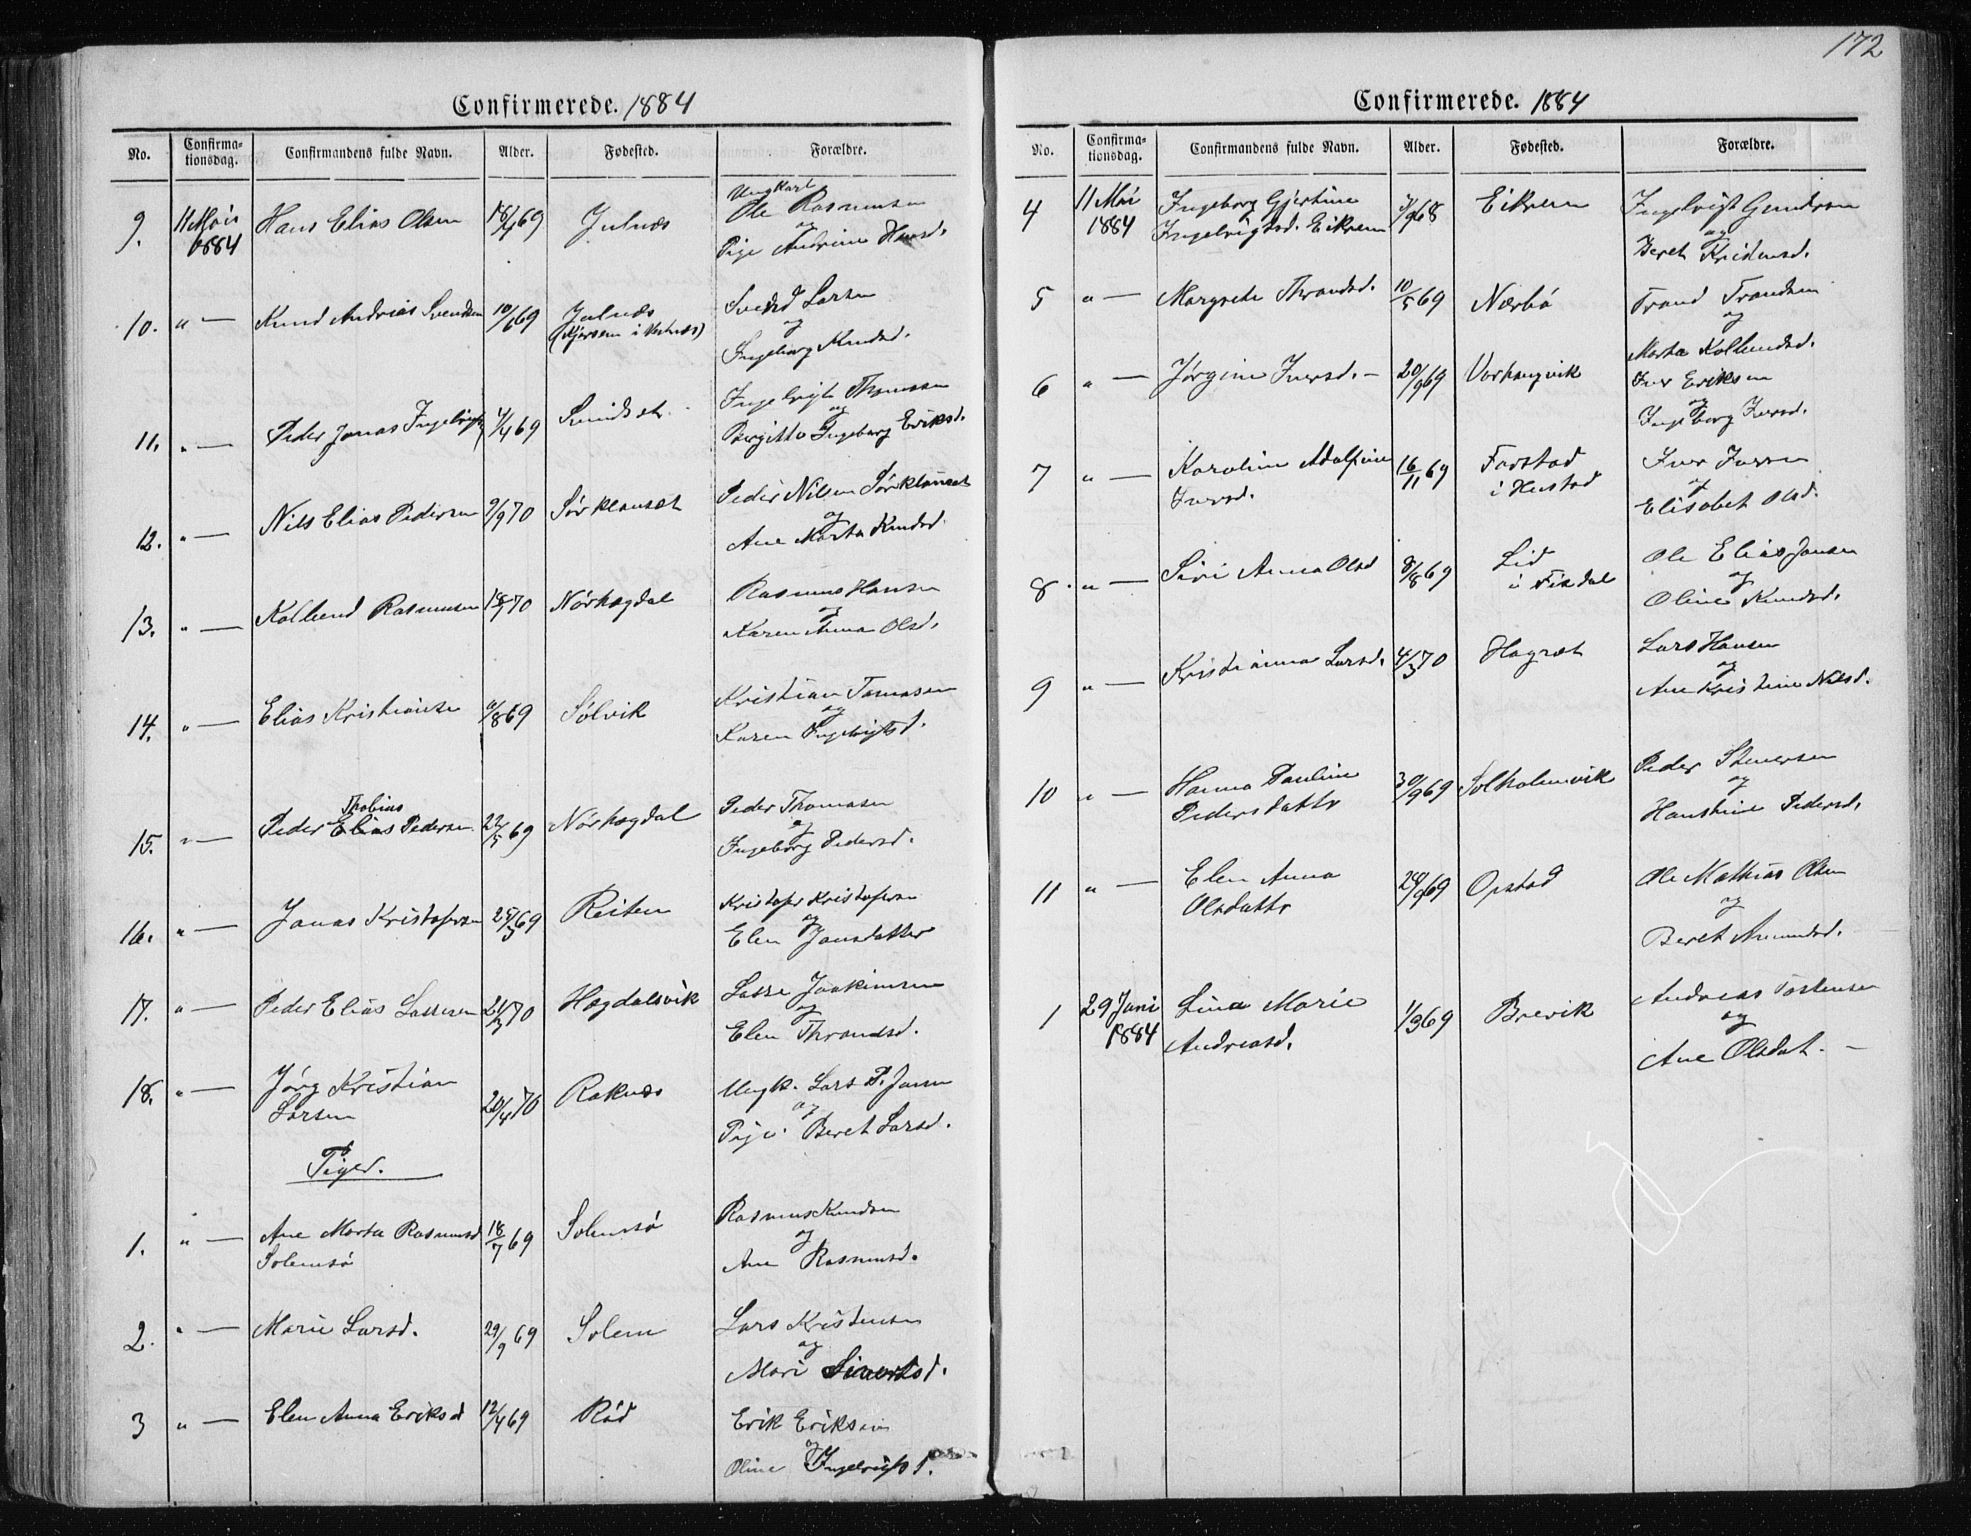 Confirmerede. 1884
No. Confirmationsdag. Confirmandens fulde Navn. Alder. Fødested. Forældre.
9. 11 Mai 1884 Hans Elias Olsen 18/4 69 Julnæs Ungkarl Ole Rasmussen
og
Pige Andrine Hansd.
10. " — Knud Andrias Svendsen 10/6 69 Julnæs Svend Larsen
og
Ingeborg Knudsd.
11. " — Peder Jonas Ingebrigts 4/4 69 Smidset Ingebrigt Thomassen
og
Birgitte Ingeborg Eriksd.
12. " — Nils Elias Pedersen 9/9 70 Sørklauset Peder Nilsen Sørklauset
og
Ane Marta Knudsd.
13. " — Kolbend Rasmussen 18/7 70 Nørhægdal Rasmus Hansen
og
Karen Anna Olsd.
14. " — Elias Kristiansen /8 69 Sølvik Kristian Tomasen
og
Karen Ingebrigtsd.
15. " — Peder Thobias Elias Pedersen 22/5 69 Nørhægdal Peder Thomasen
og
Ingeborg Pedersd.
16. " — Jonas Kristofersen 25/3 69 Reiten Kristofer Kristofersen
og
Elen Jonsdatter
17. " — Peder Elias Lassesen 21/3 70 Hægdalsvik Lasse Joakimsen
og
Elen Throndsd.
18. " — Jørg Kristian Larsen 20/4 70 Raknæs Ungk. Lars P. Jonsen
og
Pige. Beret Larsd.
Piger.
1. " — Ane Marta Rasmusd. Solemsø 18/7 69 Solemsø Rasmus Knudsen
og
Ane Rasmusd.
2. " — Marie Larsd. 29/9 69 Solem Lars Kristensen
og
Mari Sivertsd.
3 " — Elen Anna Eriksd 12/4 69 Rød Erik Eriksen
og
Oline Ingebrigtsd.
172
Confirmerede. 1884
No. Confirmationsdag. Confirmandens fulde Navn. Alder. Fødested. Forældre.
4 11 Mai 1884 Ingeborg Gjertine Ingebrigtsd. Eikrem /9 68 Eikrem Ingebrigt Gundersen
og
Beret Kristensd.
5 " — Margrete Throndsd. 10/5 69 Nærbø Trond Trondsen
og
Marta Kolbendsd.
6 " — Jørgine Iversd. — 20/9 69 Varhaugvik Iver Eriksen
og
Ingeborg Iversd.
7 " — Karoline Adolfine Iversd. 16/11 69 Farstad i Hustad Iver Iversen
og
Elisabet Olsd.
8 " — Siri Anna Olsd 8/8 69 Lid i Fixdal Ole Elias Jonsen
og
Oline Knudsd.
9 " — Kristianna Larsd. 4/3 70 Hagset Lars Hansen
og
Ane Kristine Nilsd.
10 " — Hanna Pauline Pedersdatter 30/9 69 Solholmvik Peder Stenersen
og
Hanstine Pedersd.
11 " — Elen Anna Olsdatter 69 Opstad Ole Mathias Olsen
og
Beret Amundsd.
1 29 Juni 1884 Lina Marie Andreasd. 1/3 69 Brevik Andreas Torstensen
og
Ane Olsdat. —